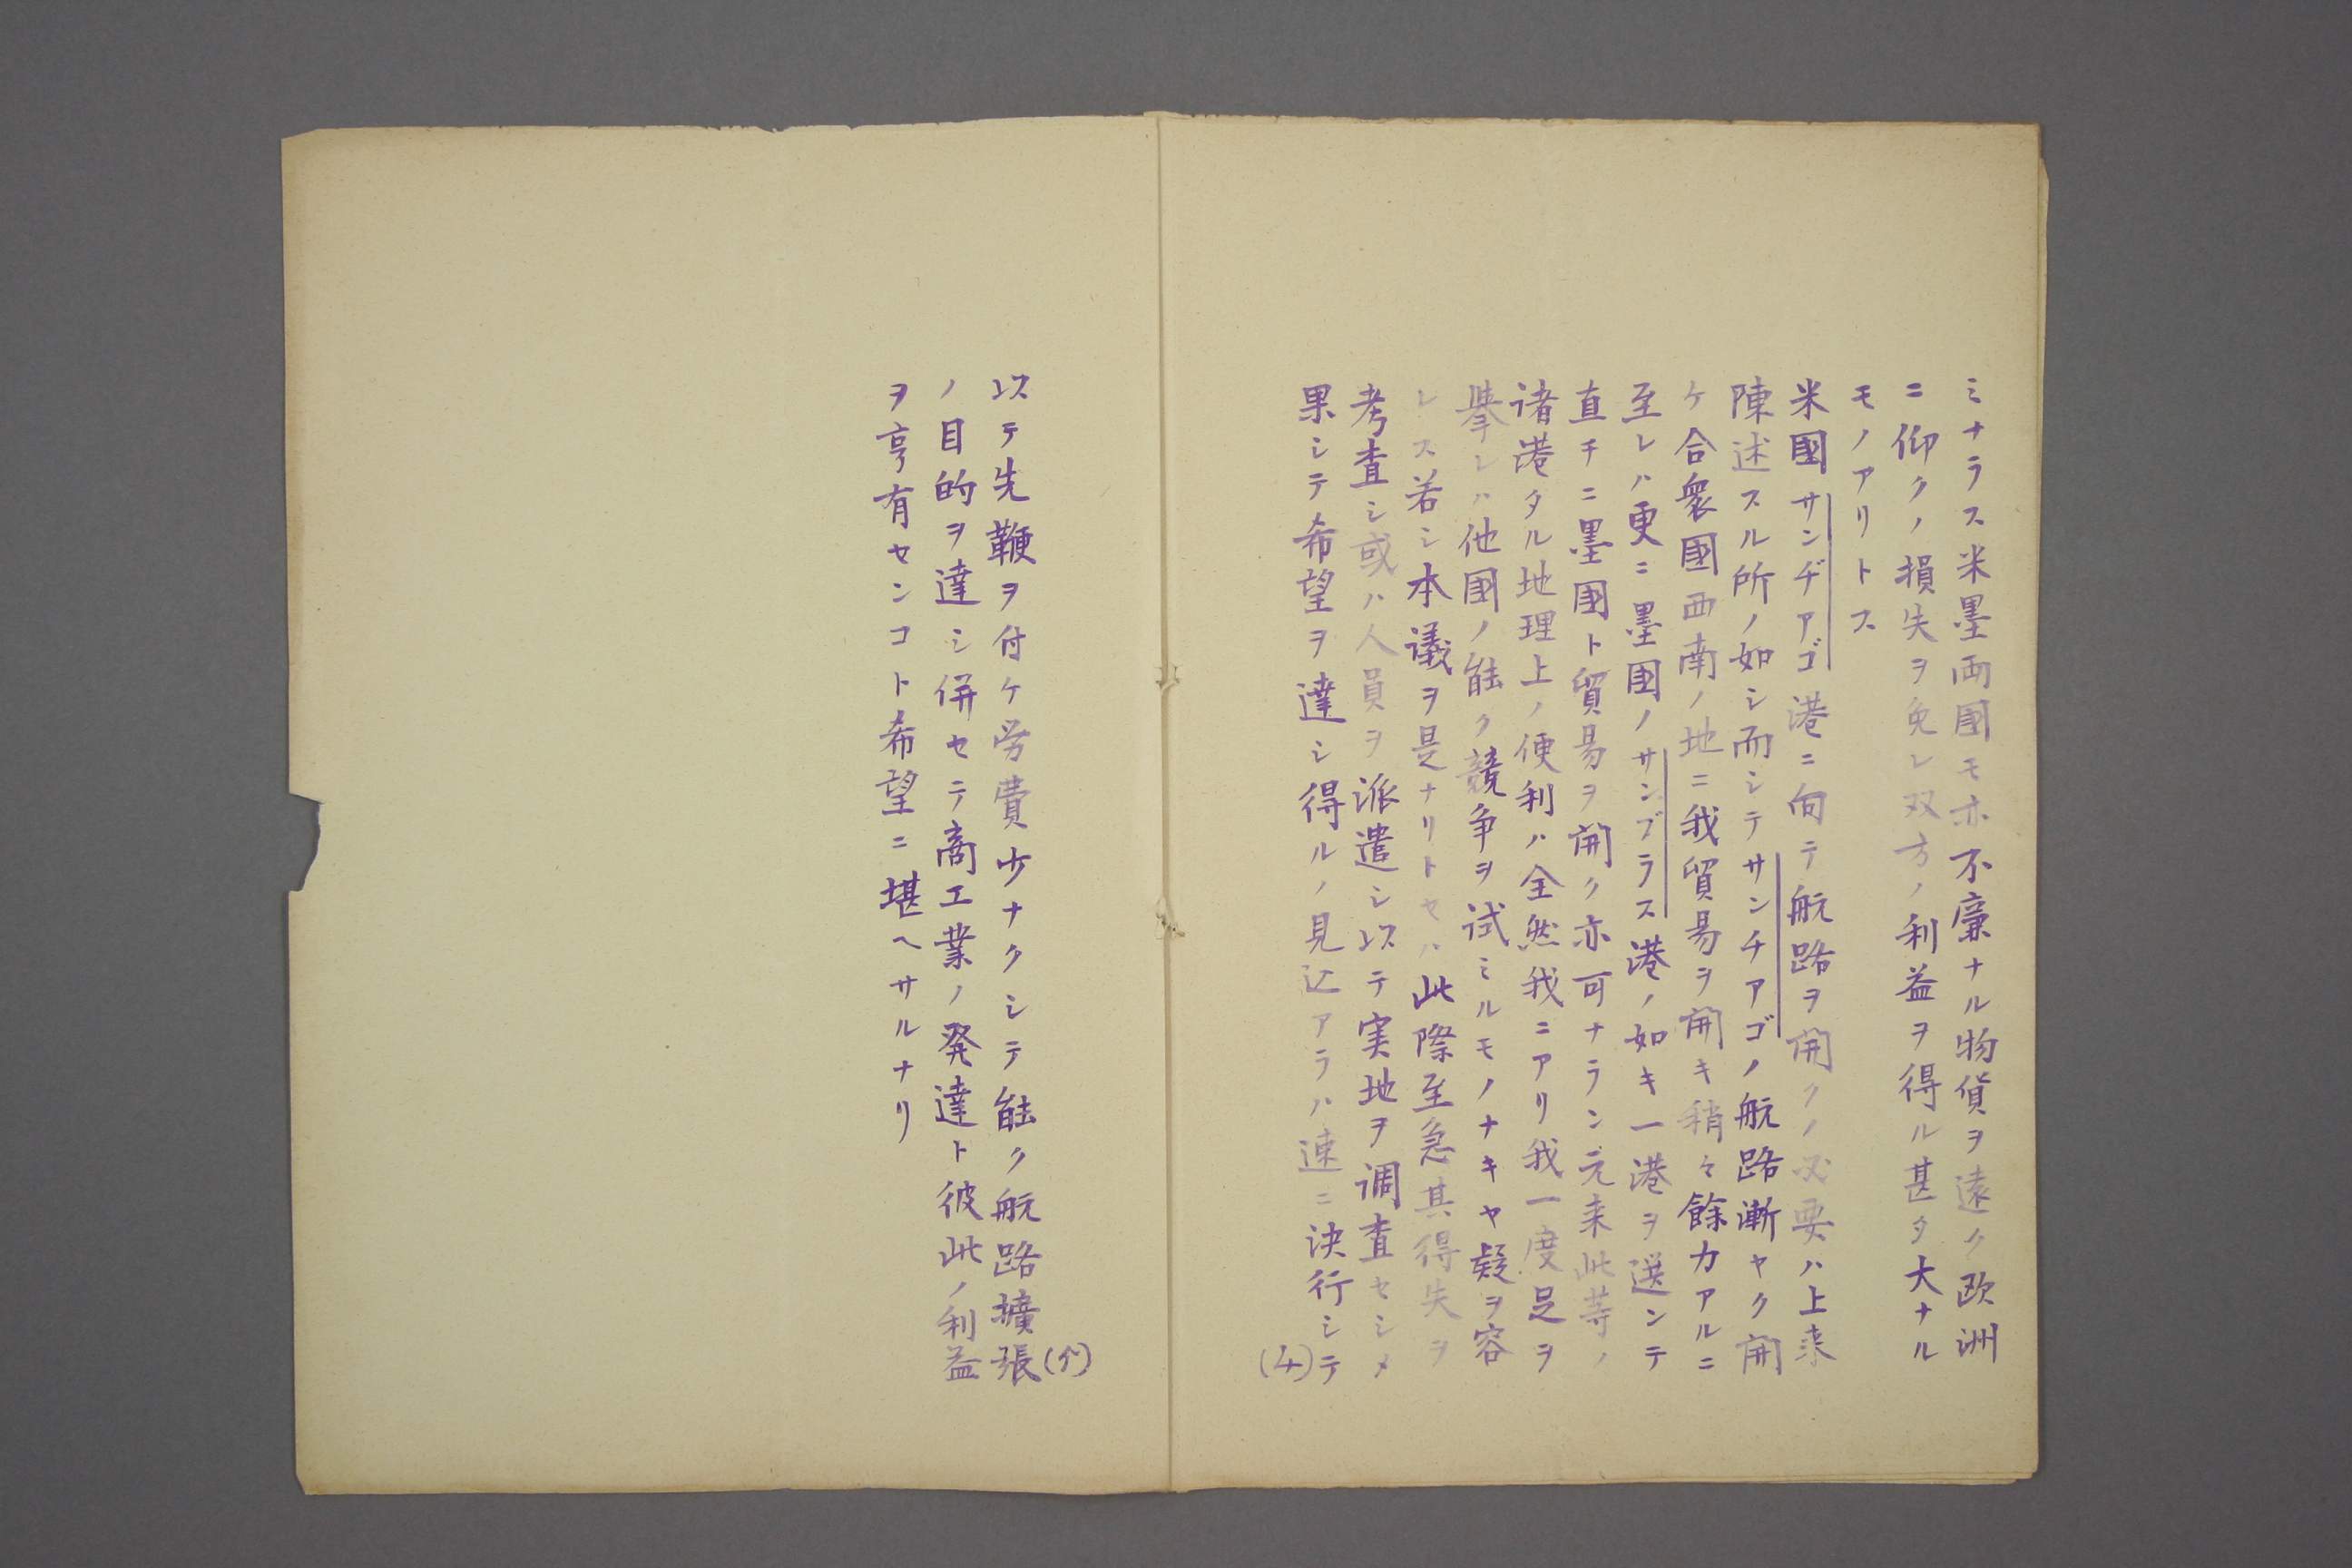 ミナラス米墨両國モ亦不廉ナル物貨ヲ遠ク欧洲
ニ仰クノ損失ヲ免レ双方ノ利益ヲ得ル甚タ大ナル
モノアリトス
米國サンヂアゴ港ニ向テ航路ヲ開クノ必要ハ上来
陳述スル所ノ如シ而シテサンチアゴノ航路漸ヤク開
ケ合衆國西南ノ地ニ我貿易ヲ開キ稍々餘力アルニ
至レハ更ニ墨國ノサンブラス港ノ如キ一港ヲ選ンテ
直チニ墨國ト貿易ヲ開ク亦可ナラン元来此等ノ
諸港タル地理上ノ便利ハ全然我ニアリ我一度足ヲ
擧レハ他國ノ能ク競争ヲ試ミルモノナキヤ疑ヲ容
レス若シ本議ヲ是ナリトセハ此際至急其得失ヲ
考査シ或ハ人員ヲ派遣シ以テ実地ヲ調査セシメ
果シテ希望ヲ達シ得ルノ見込アラハ速ニ決行シテ
(4)
(5)
以テ先鞭ヲ付ケ労費少ナクシテ能ク航路擴張
ノ目的ヲ達シ併セテ商工業ノ発達ト彼此ノ利益
ヲ享有センコト希望ニ堪ヘサルナリ